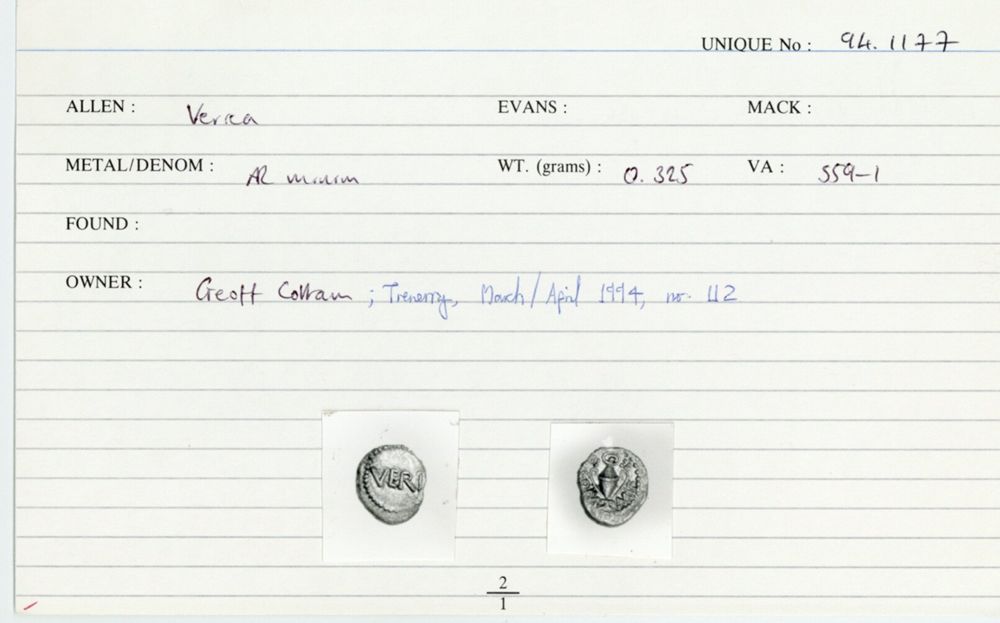 UNIQUE No : 94.1177
ALLEN : Verica EVANS : MACK :
METAL/DENOM : AR minim WT. (grams) : 0.325 VA : 559-1
FOUND :
OWNER : Geoff Cottam ; Trenerry, March/April 1994, no. 112
VERI
2
1